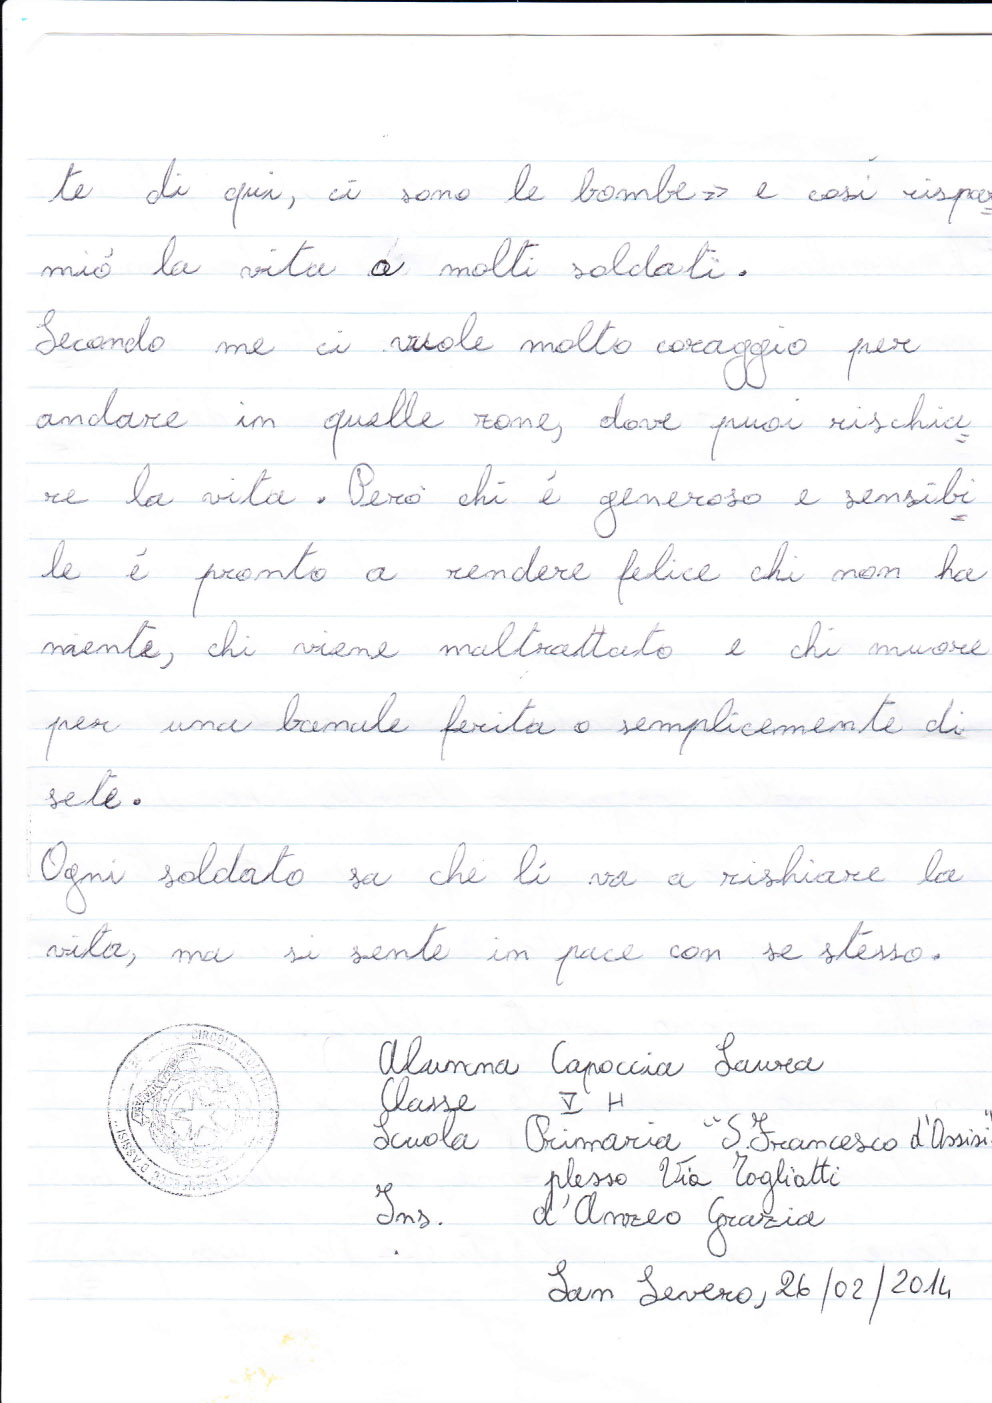 te di qui, ci sono le bombe>> e cosí rispar=
mió la vita a molti soldati.
Secondo me ci vuole molto coraggio per
andare in quelle zone, dove puoi rischia=
re la vita. Peró chi é generoso e sensibi=
le é pronto a rendere felice chi non ha
niente, chi viene maltrattato e chi muore
per una banale ferita o semplicemente di
sete.
Ogni soldato sa che lí va a rishiare la
vita, ma si sente in pace con se stesso.
CIRCOLO
Alunna Capoccia Laura
Classe V H
Scuola Primaria "S. Francesco d'Assisi"
plesso Via Togliatti
Ins. d'Anzeo Grazia
San Severo, 26/02/2014